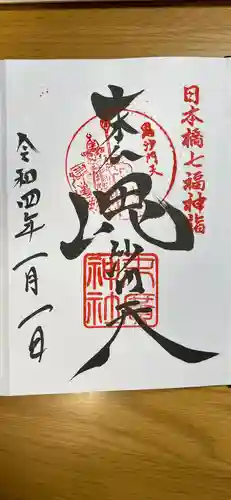 日本橋七福神詣
毘沙門天
末廣
毘沙門天
末廣神社
令和四年一月一日